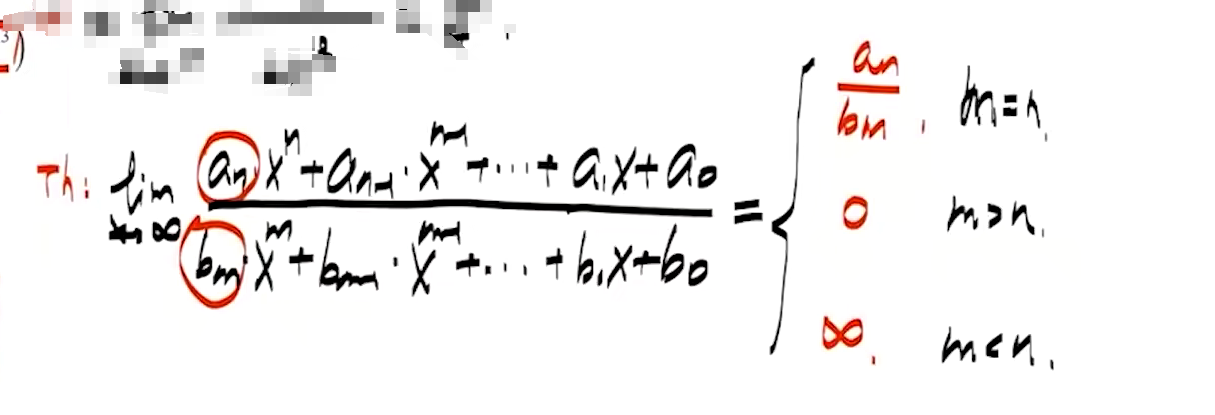 Th: lim x→∞ (aₙ·xⁿ + aₙ₋₁·xⁿ⁻¹ + ⋯ + a₁x + a₀) / (bₘ·xᵐ + bₘ₋₁·xᵐ⁻¹ + ⋯ + b₁x + b₀) = { aₙ/bₘ, m=n.
0 m>n.
∞. m<n.